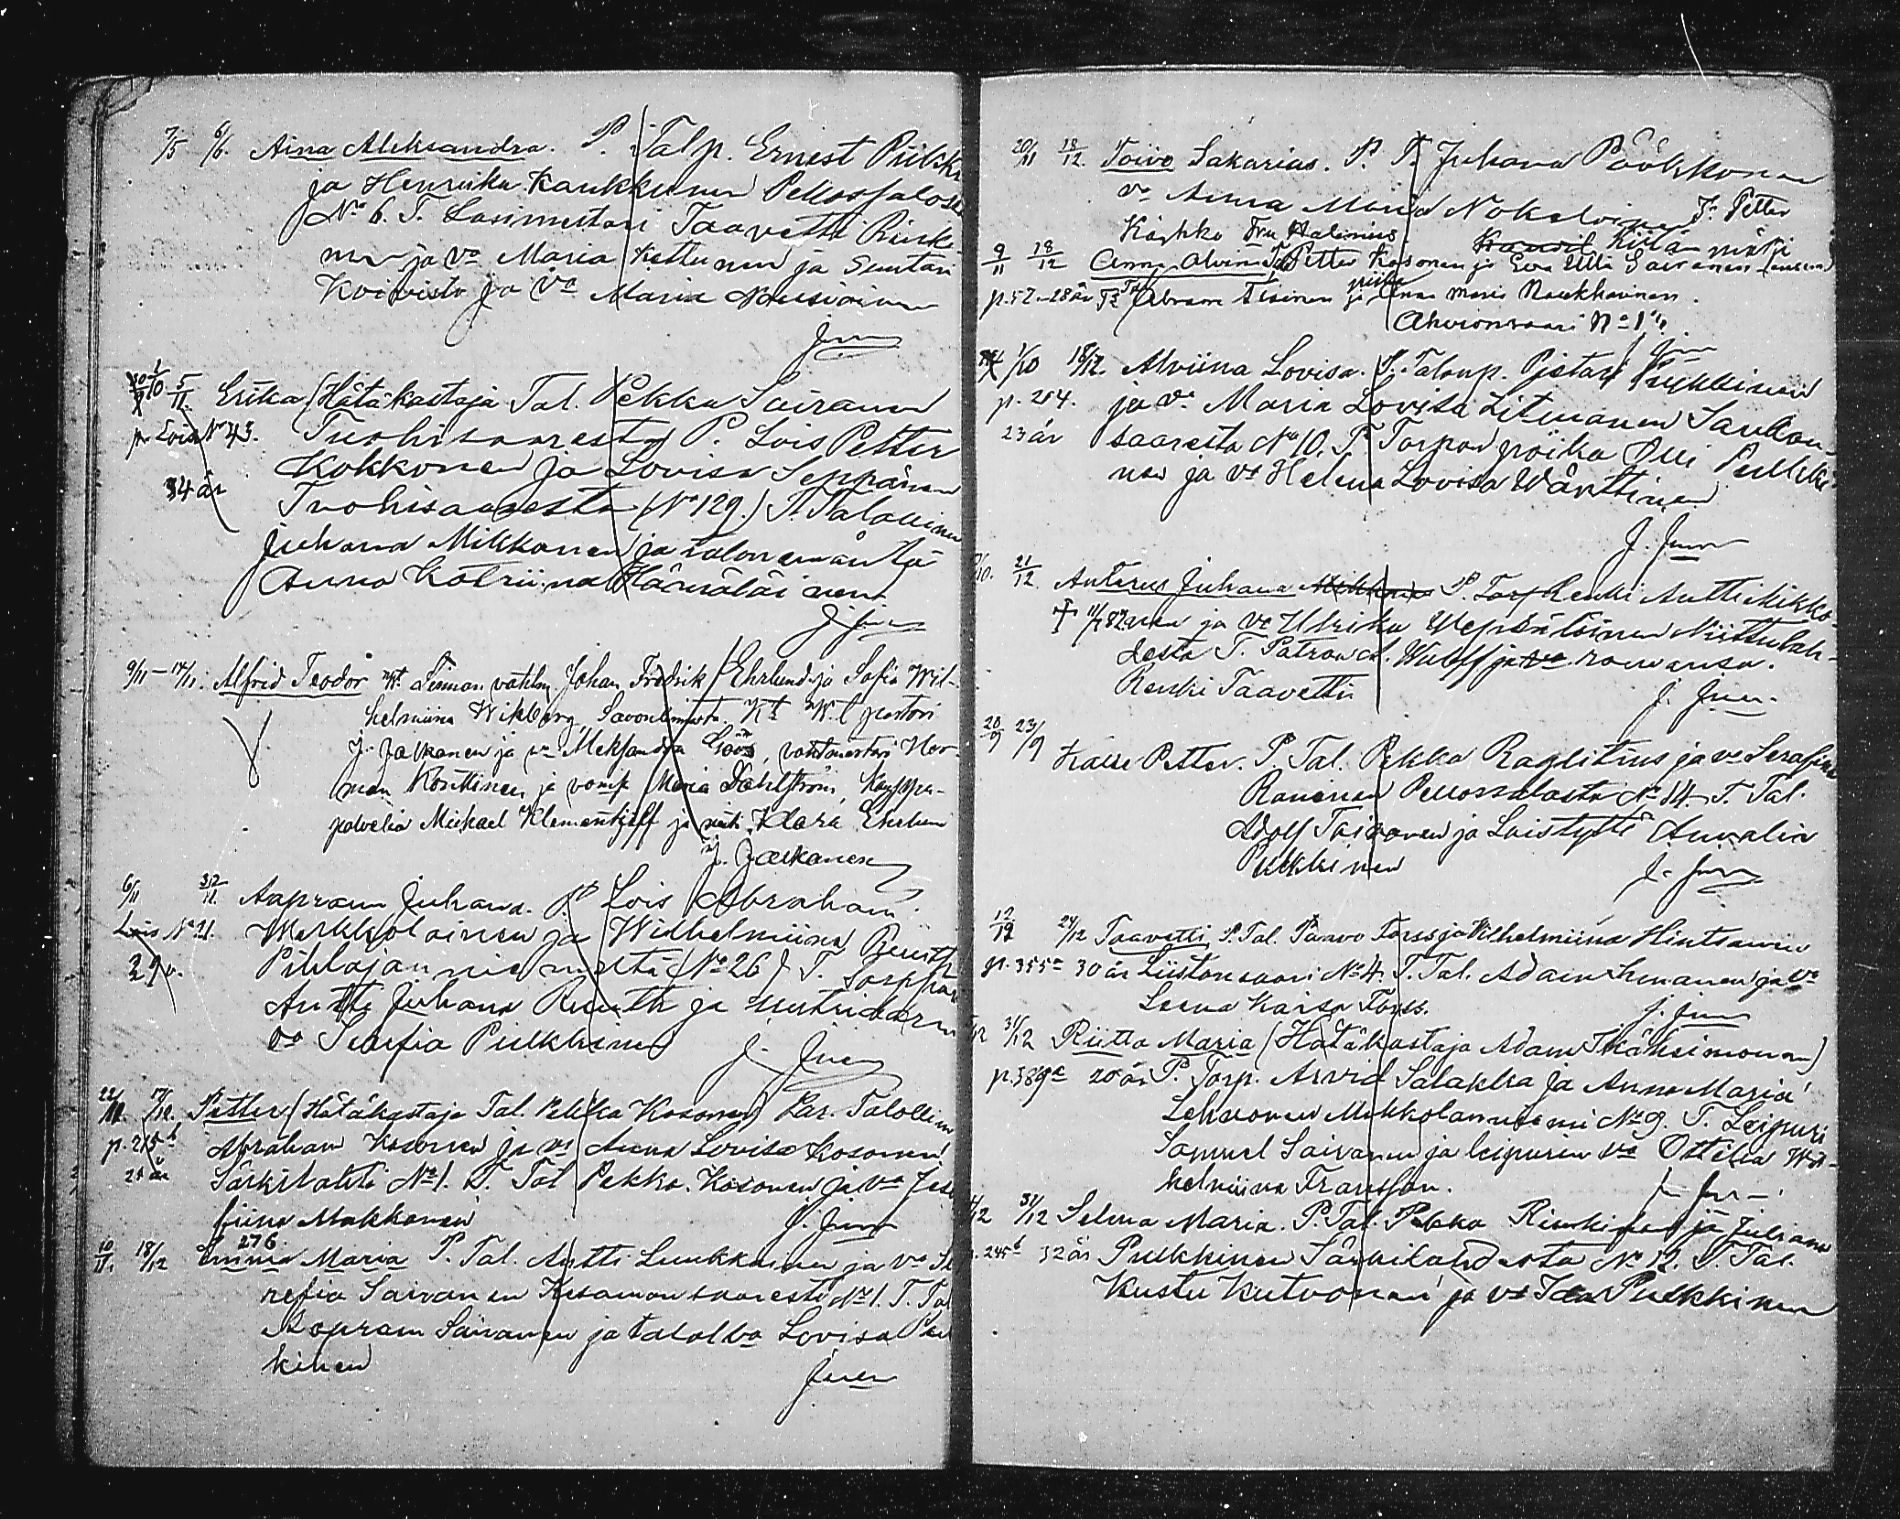 7/5 6/6. Aina Aleksandra. P. Talp. Ernest Pulkki
ja Henriika Kaukkunen Pellossalosta
No 6. T. Lasimestari Taavetti Rusk-
nen ja vo Maria Kettunen ja Suutari
Koivisto ja Vo Maria Nousiainen
J. Juen
1/10 5/11 Erika (Hätäkastaja Tal. Pekka Sairanen
p. Lois No 43. Tuohisaaresta) P. Lois Petter
Kokkonen ja Lovisa Seppänen
34 år Tuohisaaresta (No 129.) T. Talollinen
Juhana Mikkonen ja talonemäntä
Anna Katriina Hämäläinen
J. Juen
9/11 – 17/11. Alfrid Teodor Johan Fredrik Ehrlund ja Sofia Wil-
helmiina Wikberg Savonlinnasta. Kt W.t. pastori
J. Jalkanen ja vo Aleksandra Göös, vahtimestari Her-
man Konttinen ja vomp Maria Dahlström, Kauppa-
palvelia Mickael Klementjeff ja nti Klara Ehrlund
J. Jalkanen
6/11 Aapram Juhana. P. Lois Abraham
Lois No 21. Markkolainen ja Wilhelmiina Ruuth
29 v. Pihlajanniemestä (No 26) T. Torppari
Antti Juhana Ruuth ja uutisdarin
vo Serefia Pulkkinen J. Juen
Petter (Hätäkastaja Tal. Pekka Kosonen) Par. Talollinen
p. 215 b Abraham Kosonen ja vo Anna Lovisa Kosonen
25 år Särkilahti No 1. T. Tal Pekka Kosonen ja vo Jose
fiina Makkonen J. Juen
276
10/11. 18/12 Emma Maria P. Tal. Antti Luukkainen ja vo Se
refia Sairanen Kesamonsaaresta No 1. T. Tal
Aapram Sairanen ja talol. vo Lovisa Pul
kinen Juen
20/11 18/12 Toivo Sakarias. P. T. Juhana Pöökkonen
vo Anna Maria Nokelainen T. Petter
Kärkko Fru Halenius Kiilan mäki
9/11 18/12 Anna Alvina P. Petter Kosonen ja Eva Ulla Sairanen
p. 57. 28 år Tt Abram Tiainen ja piika Anna Maria Naukkarinen.
Ahvionsaari No 1
J. Juen
1/10 18/12. Alviina Lovisa. P. Talonp. Pjetari Pulkkinen
p. 204. ja vo Maria Lovisa Litmanen Saukon
23 år saaresta No 10. T. Torpan poika Olli Pulkki
nen ja vo Helena Lovisa Wärttinen
J. Juen
/10. 21/12. Anterus Juhana P. Torp Renki Antti Mikko-
nen ja vo Ulrika Wepsäläinen Niittulah-
desta T. Patron A. Wulff ja rouvansa.
Renki Taavetti J. Juen.
20/9 23/9 Kalle Petter. P. Tal. Pekka Raglitius ja vo Serafina
Ranenen Pellossalosta No 14. T. Tal.
Adolf Toivonen ja Loistyttö Amalia
Pulkkinen J. Juen
12/12 24/12 Taavetti P. Tal. Paavo Forss ja Vilhelmiina Hintsanen
p. 355 a 30 år Liistonsaari No 4. T. Tal. Adam Immonen ja vo
Leena Kaisa Forss. J. Juen
/12 31/12 Riitta Maria (Hätäkastaja Adam Ikäheimonen)
p. 389 a 20 år P. Torp. Arvid Salakka ja Anna Maria
Lehmonen Mikkolanniemi No 9. T. Leipuri
Samuel Sairanen ja leipurin vo Ottilia Wil-
helmiina Fransson. J. Juen.
/12 31/12 Selma Maria. P. Tal. Pekka Ruskinen ja Juliana
245 b 32 år Pulkkinen Särkilahdesta No 12. T. Tal.
Kustu Kutvonen ja vo Ida Pulkkinen